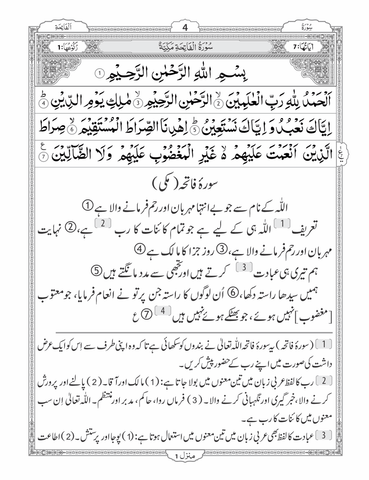 اَلْفَاتِحَة ١
4
سُوْرَةٌ
رُكُوْعُهَا:1
سُوْرَةُ الْفَاتِحَةِ مَكِّيَّةٌ
اٰيَاتُهَا:7
بِسْمِ اللّٰهِ الرَّحْمٰنِ الرَّحِيْمِ ①
اَلْحَمْدُ لِلّٰهِ رَبِّ الْعٰلَمِيْنَ ② الرَّحْمٰنِ الرَّحِيْمِ ③ مٰلِكِ يَوْمِ الدِّيْنِ ④
اِيَّاكَ نَعْبُدُ وَ اِيَّاكَ نَسْتَعِيْنُ ⑤ اِهْدِنَا الصِّرَاطَ الْمُسْتَقِيْمَ ⑥ صِرَاطَ
الَّذِيْنَ اَنْعَمْتَ عَلَيْهِمْ ۙ۬ غَيْرِ الْمَغْضُوْبِ عَلَيْهِمْ وَ لَا الضَّآلِّيْنَ ⑦
سورۂ فاتحہ (مکی)
اللہ کے نام سے جو بے انتہا مہربان اور رحم فرمانے والا ہے ①
تعریف [1] اللہ ہی کے لیے ہے جو تمام کائنات کا رب [2] ہے، ② نہایت
مہربان اور رحم فرمانے والا ہے، ③ روزِ جزا کا مالک ہے ④
ہم تیری ہی عبادت [3] کرتے ہیں اور تجھی سے مدد مانگتے ہیں ⑤
ہمیں سیدھا راستہ دکھا، ⑥ اُن لوگوں کا راستہ جن پر تو نے انعام فرمایا، جو معتوب
[مغضوب] نہیں ہوئے، جو بھٹکے ہوئے نہیں ہیں [4] ⑦ ع
[1] (سورۂ فاتحہ) یہ سورۂ فاتحہ اللہ تعالیٰ نے بندوں کو سکھائی ہے تاکہ وہ اپنی طرف سے اس کو ایک عرض
داشت کی صورت میں اپنے رب کے حضور پیش کریں۔
[2] رب کا لفظ عربی زبان میں تین معنوں میں بولا جاتا ہے: (1) مالک اور آقا۔ (2) پالنے اور پرورش
کرنے والا، خبر گیری اور نگہبانی کرنے والا۔ (3) فرماں روا، حاکم، مدبر اور منتظم۔ اللہ تعالیٰ ان سب
معنوں میں کائنات کا رب ہے۔
[3] عبادت کا لفظ بھی عربی زبان میں تین معنوں میں استعمال ہوتا ہے: (1) پوجا اور پرستش۔ (2) اطاعت
منزل 1